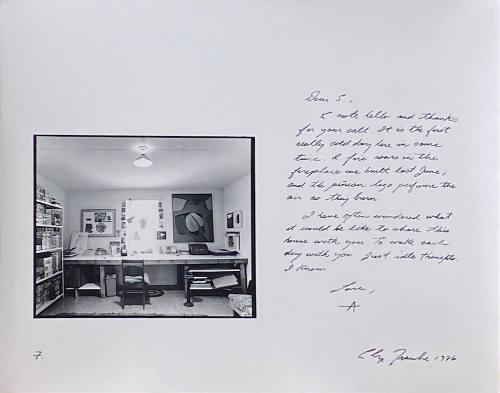 Dear S.,
A note hello and thanks
for your call. It is the first
really cold day here in some
time. A fire roars in the
fireplace we built last June,
and the piñson logs perfume the
air as they burn.
I have often wondered what
it would be like to share this
house with you. To wake each
day with you. Just idle thoughts,
I know.
Love,
A
7.
1976